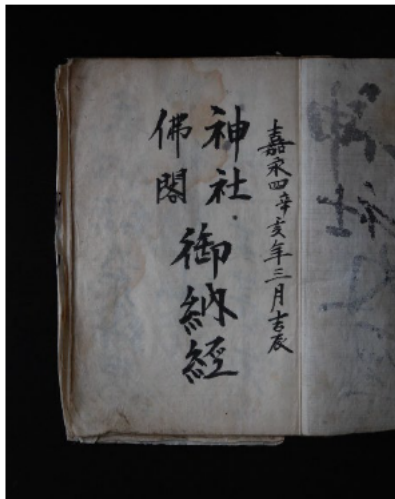 嘉永四辛亥年三月吉辰
神社
佛閣
御納經